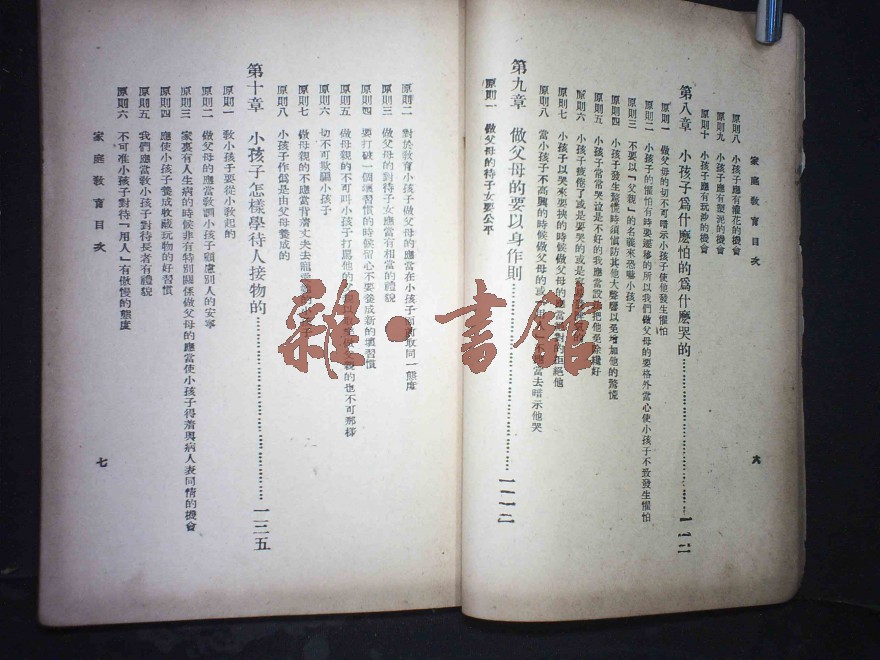 家庭教育目次
原則八 小孩子應有撞花的機會
原則九 小孩子應有塑泥的機會
原則十 小孩子應有玩沙的機會
第八章 小孩子為什麼怕的為什麼哭的
原則一 做父母的切不可暗示小孩子使他發生懼怕
原則二 小孩子的懼怕有時要遷移的所以我們做父母的要格外當心使小孩子不致發生懼怕
原則三 不要以「父親」的名義來恐嚇小孩子
原則四 小孩子發生驚慌時須慎防其他大聲響以免增加他的驚慌
原則五 小孩子常常哭泣是不好的我應當設法把他免除纔好
原則六 小孩子疲倦了或是要哭的或是
原則七 小孩子以哭來要挾的時候做父母的應當絕對的拒絕他
原則八 當小孩子不高興的時候做父母的或應當去暗示他哭
第九章 做父母的要以身作則
原則一 做父母的待子女要公平
六
原則二 對於教育小孩子做父母的應當在小孩子面前取同一態度
原則三 做父母的對待子女應當有相當的禮貌
原則四 要打破一個壞習慣的時候留心不要養成新的壞習慣
原則五 做母親的不可叫小孩子打罵他的做父親的也不可那樣
原則六 切不可欺騙小孩子
原則七 做母親的不應當背着丈夫去
原則八 小孩子作偽是由父母養成的
第十章 小孩子怎樣學待人接物的 一三五
原則一 教小孩子要從小教起的
原則二 做父母的應當教訓小孩子顧慮別人的安寧
原則三 家裏有人生病的時候非有特別關係做父母的應當使小孩子得着與病人表同情的機會
原則四 應使小孩子養成收藏玩物的好習慣
原則五 我們應當教小孩子對待長者有禮貌
原則六 不可准小孩子對待「用人」有傲慢的態度
家庭教育目次
七
雜·書館